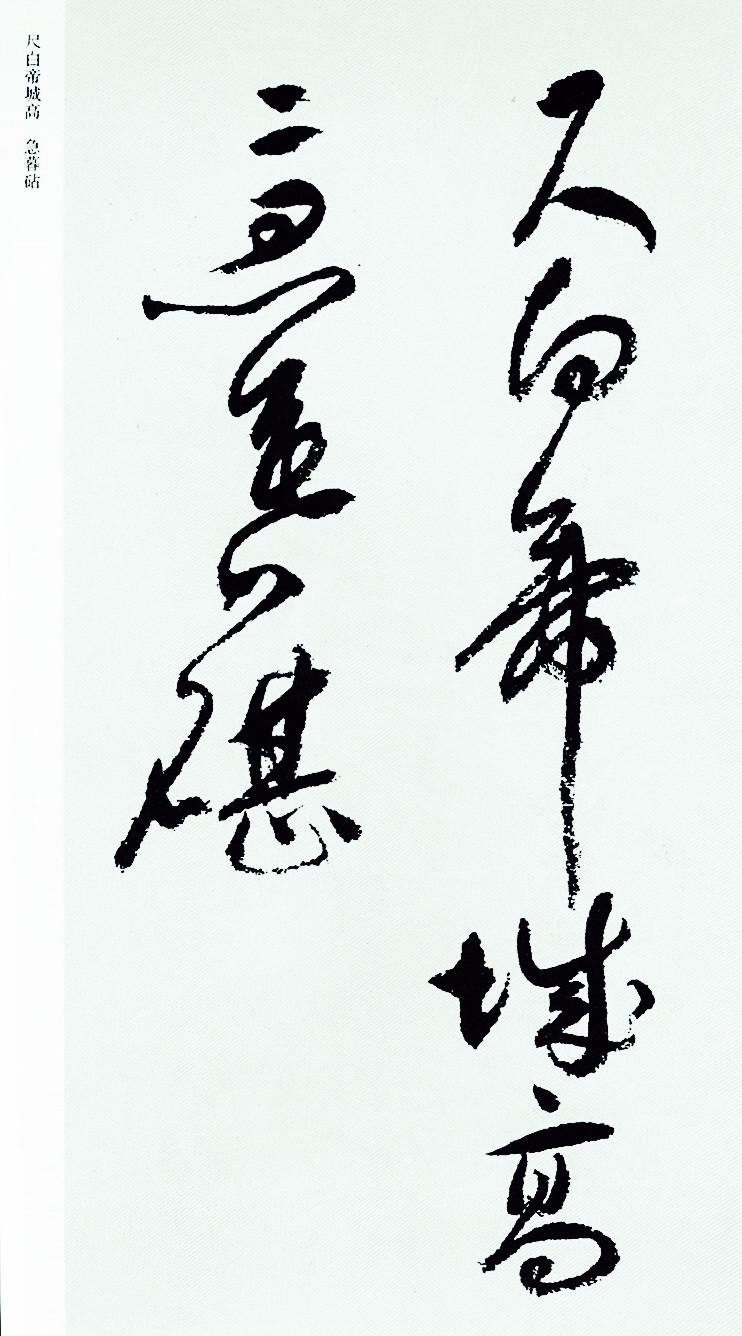 尺白帝城高
急暮碪
尺白帝城高　急暮砧